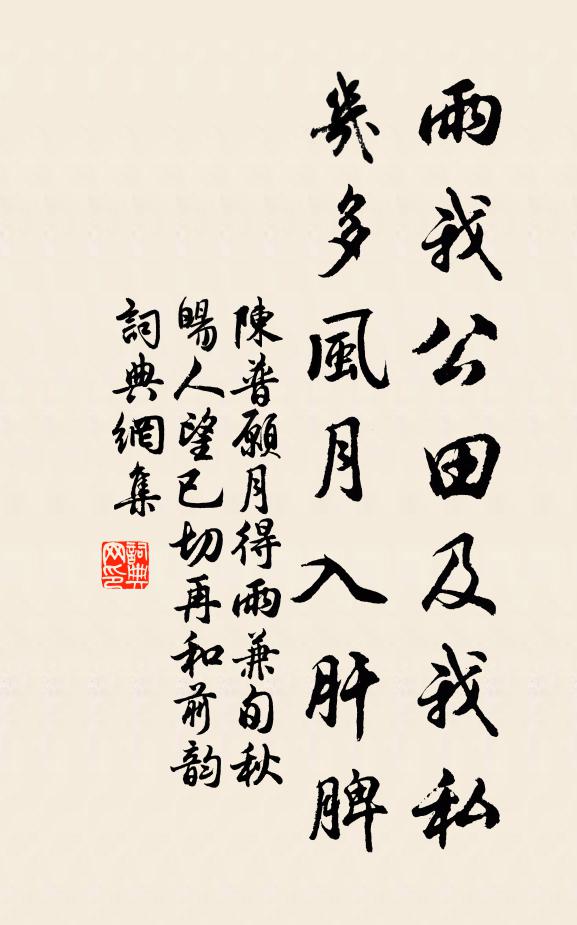 雨我公田及我私
幾多風月入肝脾
陳普願月得雨兼旬秋
暘人望已切再和前韵
詞典網集
詞典网印